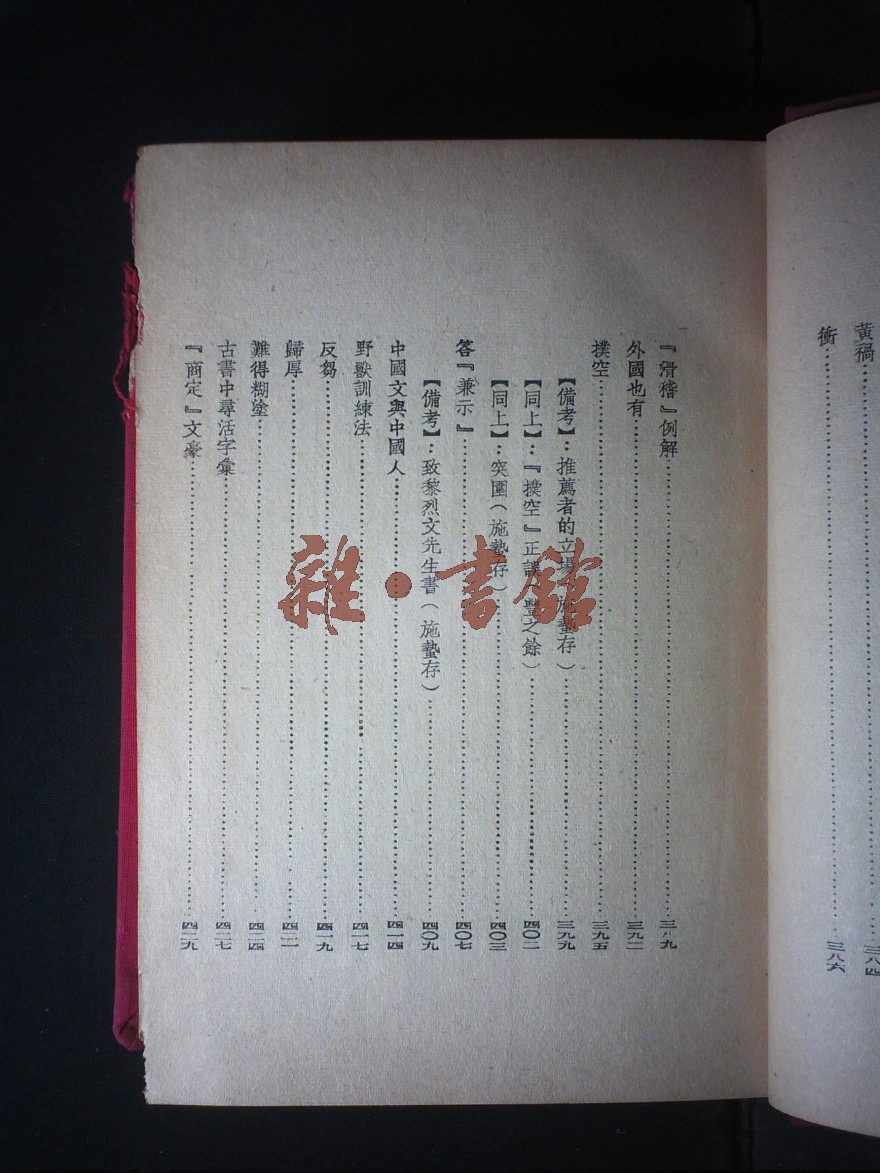 黃禍……三八四
衝……三八六
『滑稽』例解……三八九
外國也有……三九二
撲空……三九五
【備考】：推薦者的立場（施蟄存）……三九九
【同上】：『撲空』正誤（豐之餘）……四〇二
【同上】：突圍（施蟄存）……四〇三
答『兼示』……四〇七
【備考】：致黎烈文先生書（施蟄存）……四〇九
中國文與中國人……四一四
野獸訓練法……四一七
反芻……四一九
歸厚……四二一
難得糊塗……四二四
古書中尋活字彙……四二七
『商定』文豪……四二九
雜·書館